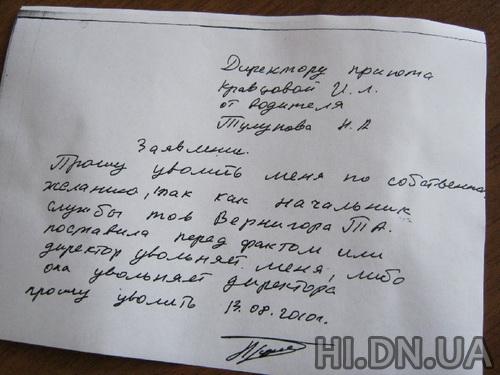 Директору приюта
Кравцовой И. Л.
от водителя
Тулупова Н. А
Заявление.
Прошу уволить меня по собственно
желанию, так как начальник
службы тов Вернигора Т.А.
поставила перед фактом или
директор увольняет меня, либо
она увольняет директора
прошу уволить 13.08.2010г.
HI.DN.UA